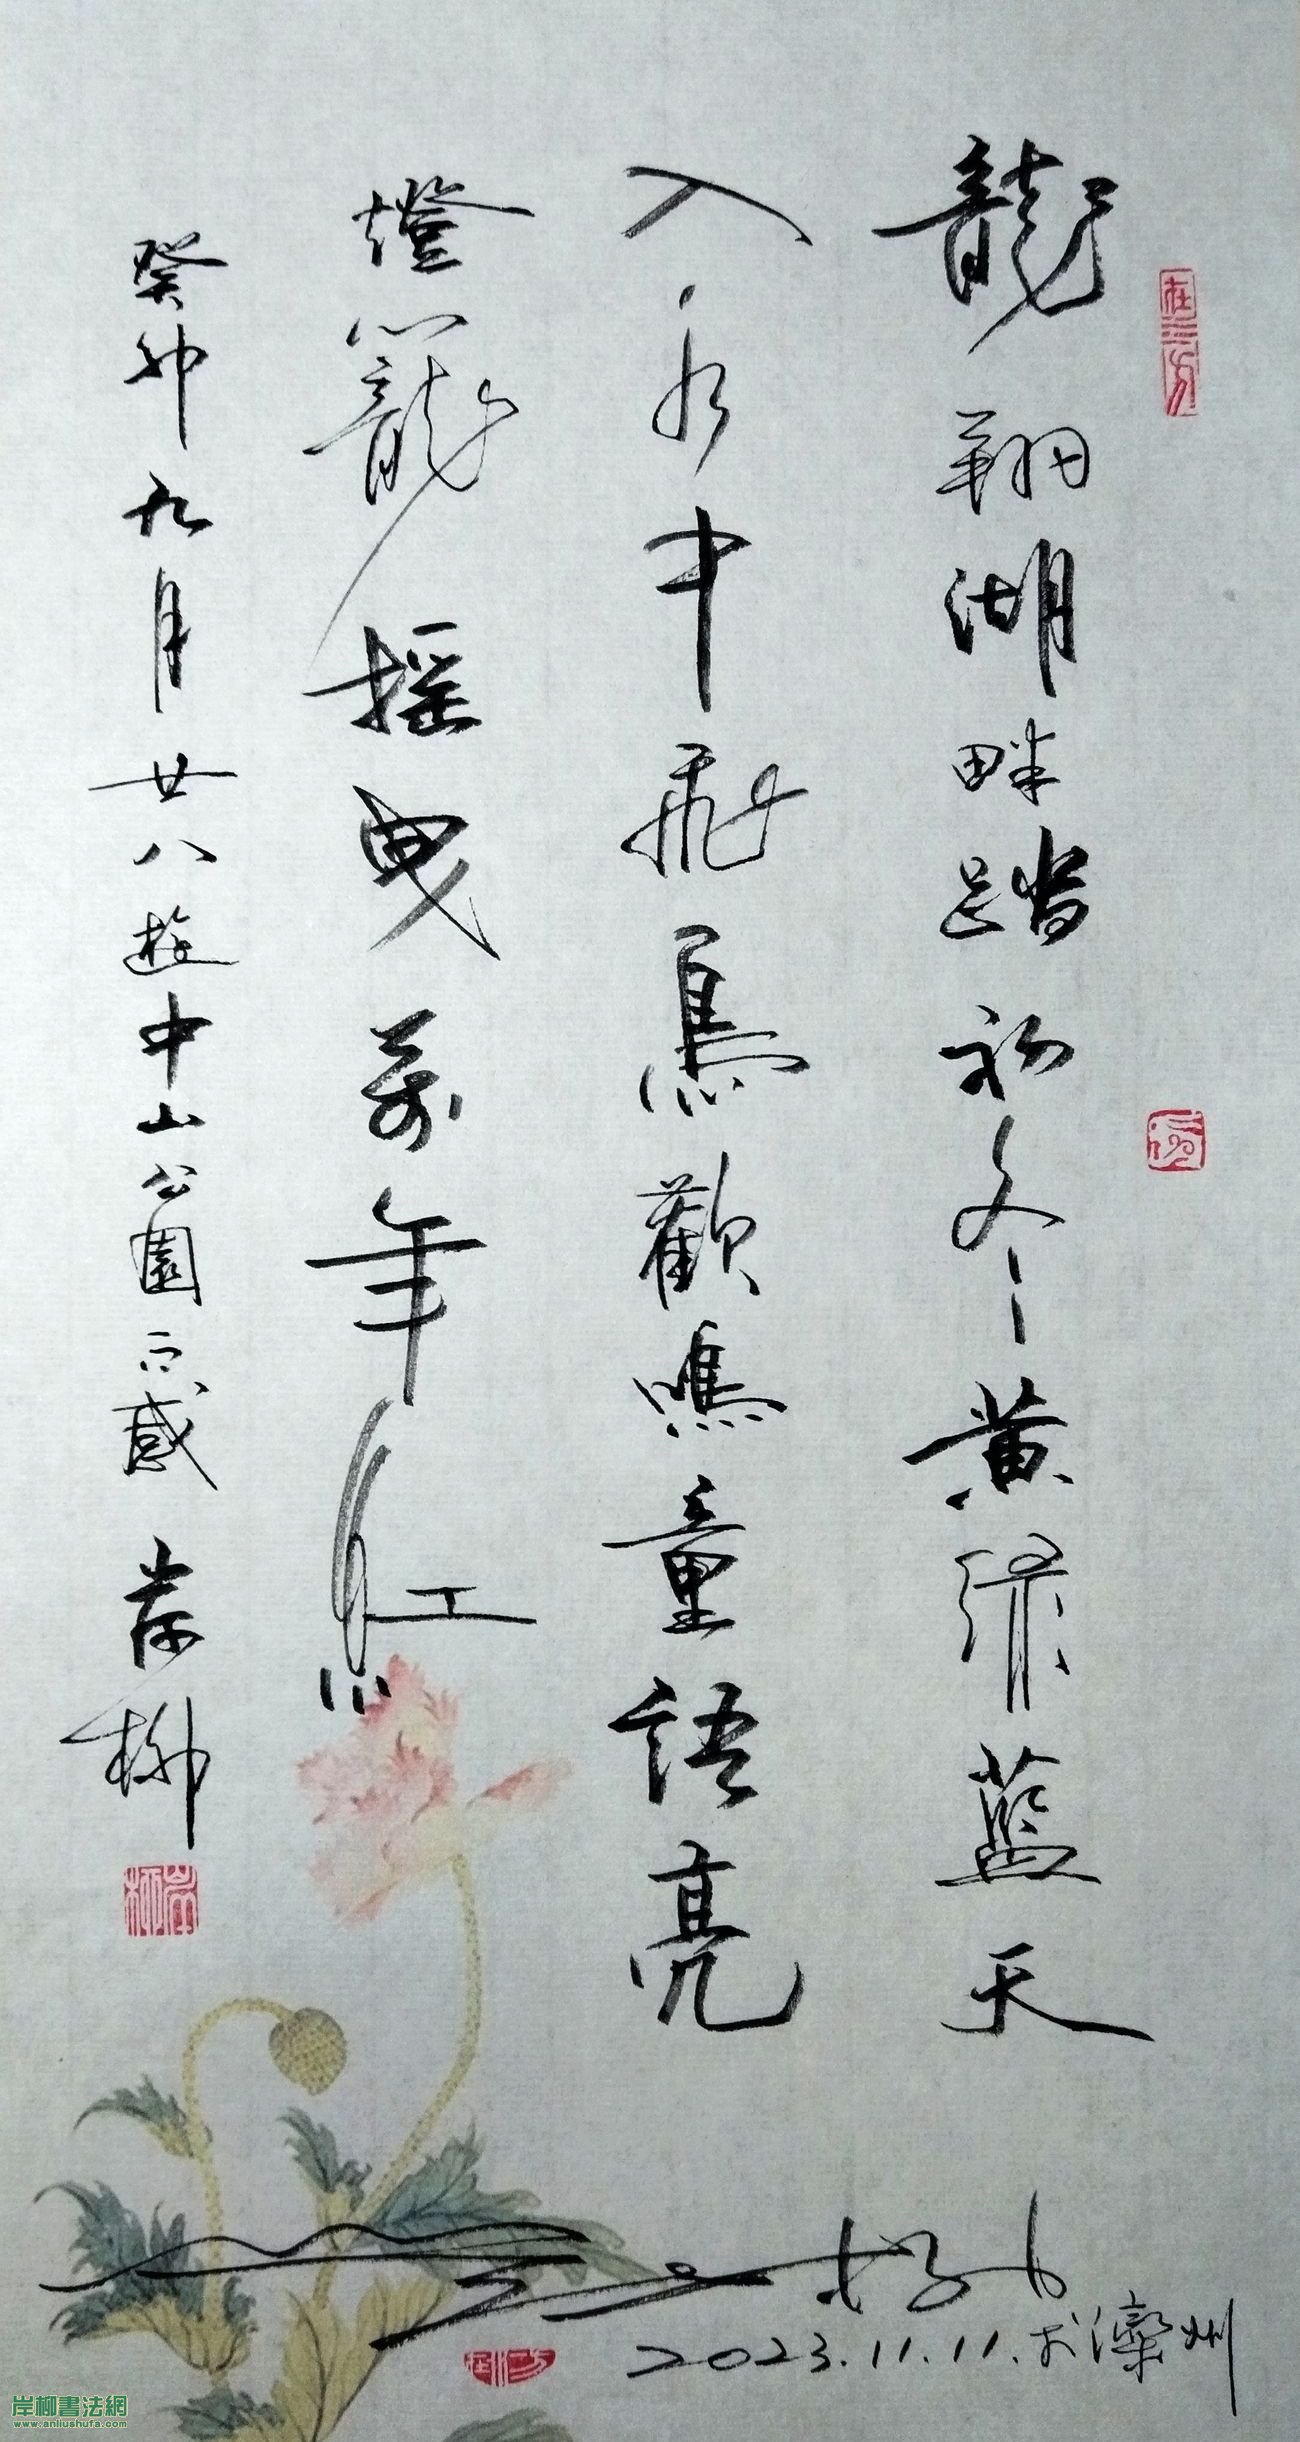 龍翔湖畔踏初冬一黄绿蓝天
入水中飛鳥歡鳴童語亮
燈籠摇曳萬年紅
癸卯九月廿八遊中山公園而感 岸柳
2023.11.11.于灤州
岸柳書法網
www.anliushufa.com